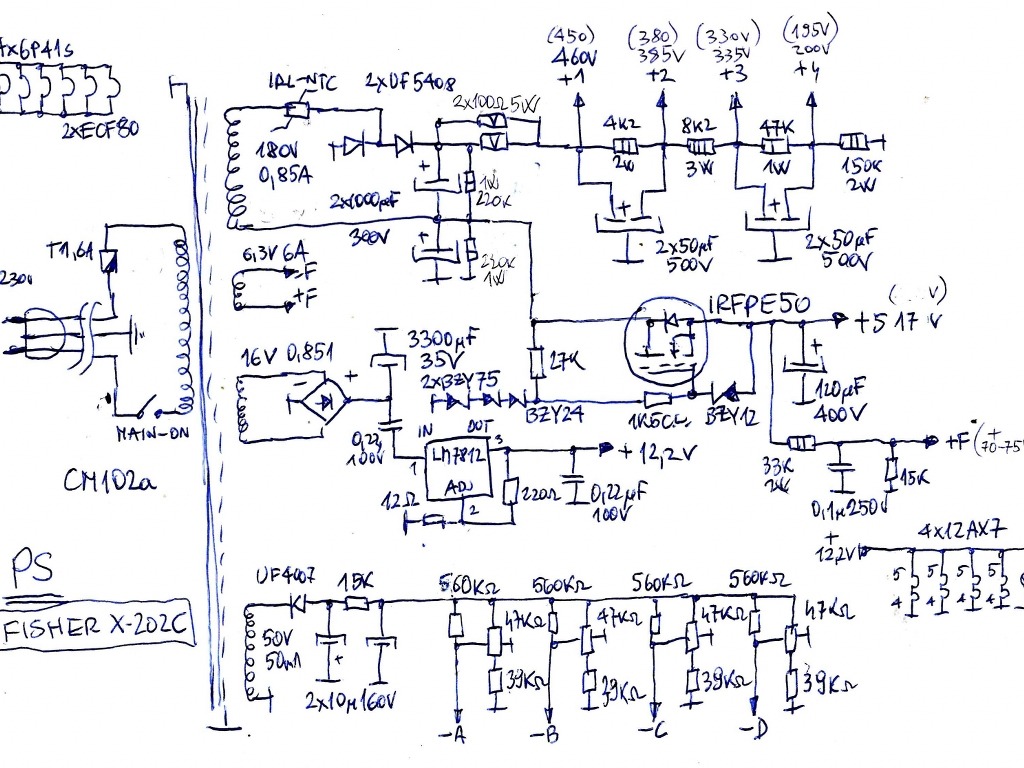 4x6P41s
2xECF80
230V
T1,6A
MAIN-ON
CM102a
PS
FISHER X-202C
IAL-NTC
2xUF5408
180V
0,85A
2x1000µF
300V
1W
220K
220K
1W
2x100Ω5W
(450)
460V
+1
(380)
385V
+2
(330V)
335V
+3
(195V)
200V
+4
4K2
2W
8K2
3W
47K
1W
150K
2W
2x50µF
500V
2x50µF
500V
6,3V 6A
-F
+F
16V 0,851
+
3300µF
35V
2xBZY75
BZY24
27K
IRFPE50
BZY12
+5 17 V
120µF
400V
33K
2W
0,1µ250V
15K
+F
70-75V
0,22
100V
IN
OUT
LM7812
ADJ
1
2
3
12Ω
220Ω
+12,2V
0,22µF
100V
+
12,2V
4x12AX7
5
4
5
4
5
4
5
4
UF4007
15K
50V
50mA
2x10µ160V
560KΩ
560KΩ
560KΩ
560KΩ
47KΩ
47KΩ
47KΩ
47KΩ
39KΩ
39KΩ
39KΩ
39KΩ
-A
-B
-C
-D